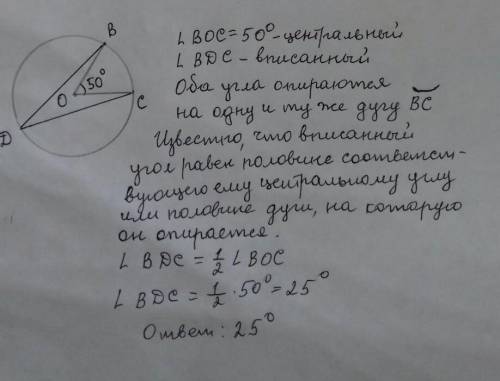 B
50°
O
C
D
∠ BOC = 50° - центральный
∠ BDC - вписанный
Оба угла опираются
на одну и ту же дугу BC
Известно, что вписанный
угол равен половине соответст-
вующего ему центральному углу
или половине дуги, на которую
он опирается.
∠ BDC = 1/2 ∠ BOC
∠ BDC = 1/2 · 50° = 25°
Ответ: 25°